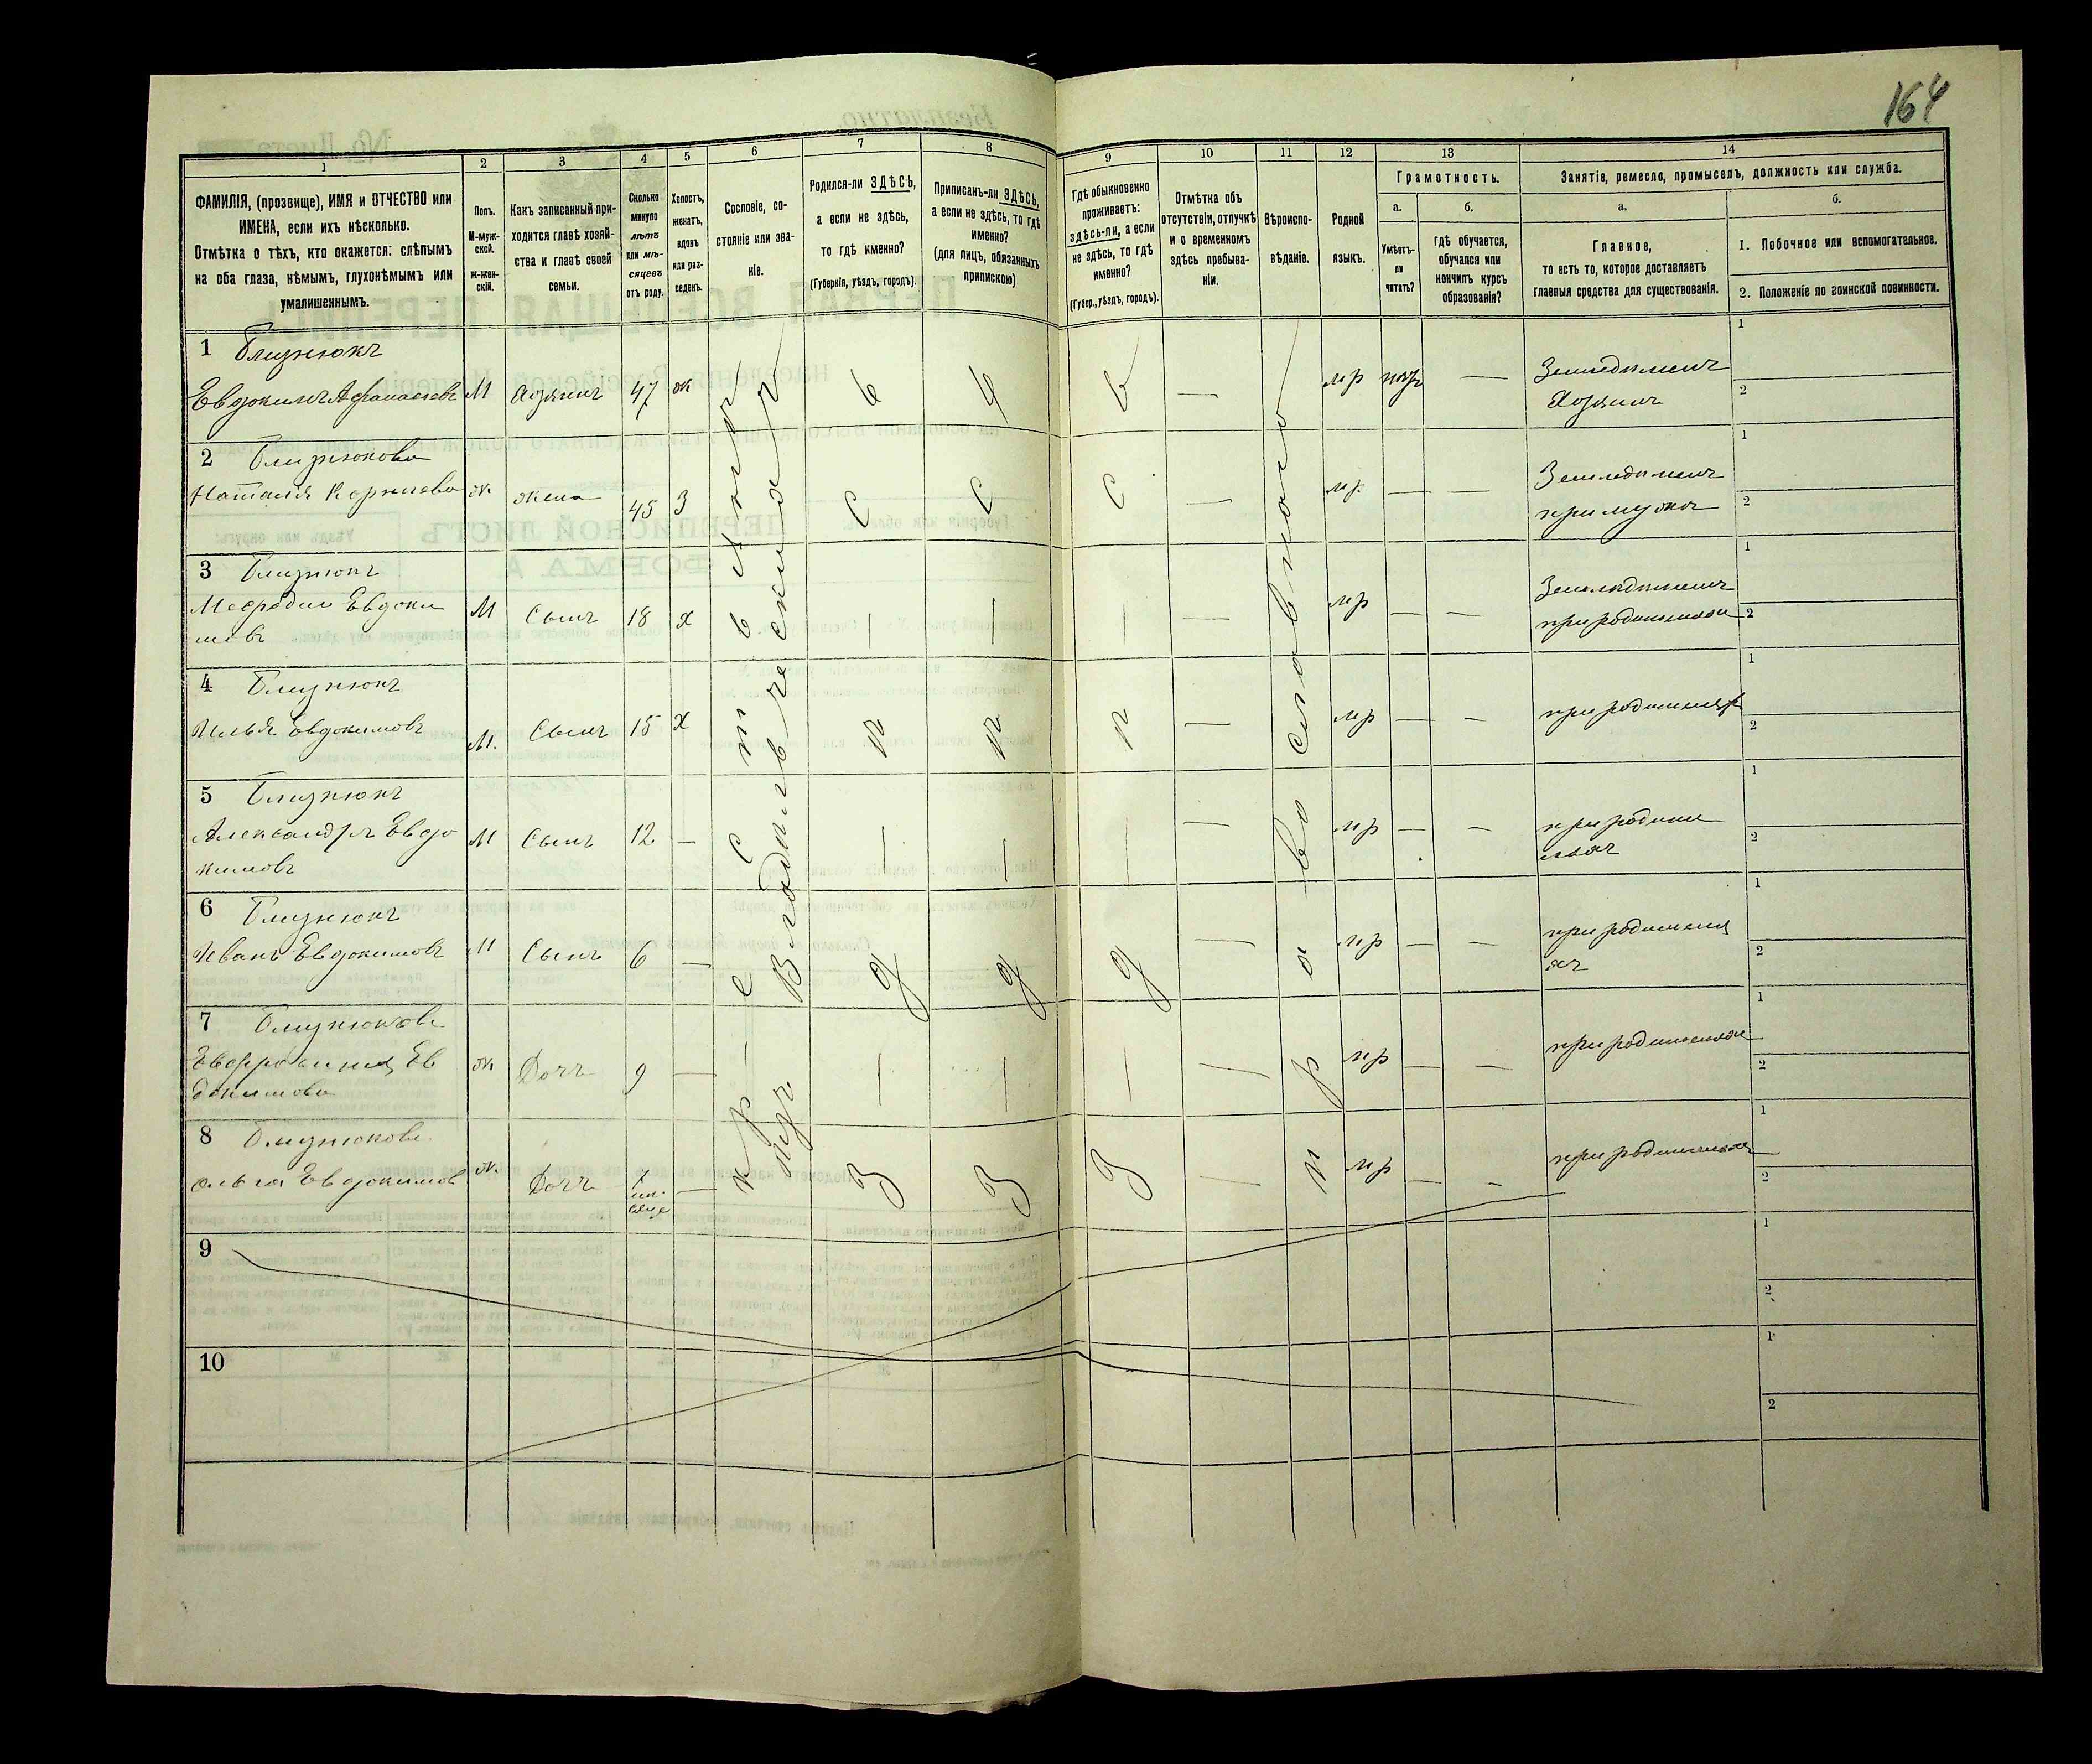 164
1 2 3 4 5 6 7 8 9 10 11 12 13 14
ФАМИЛІЯ, (прозвище), ИМЯ и ОТЧЕСТВО или
ИМЕНА, если ихъ нѣсколько.
Отмѣтка о тѣхъ, кто окажется: слѣпымъ
на оба глаза, нѣмымъ, глухонѣмымъ или
умалишеннымъ.
Полъ.
М-муж-
ской.
Ж-жен-
скій.
Какъ записанный при-
ходится главѣ хозяй-
ства и главѣ своей
семьи.
Сколько
минуло
лѣтъ
или мѣ-
сяцевъ
отъ роду.
Холостъ,
женатъ,
вдовъ
или раз-
веденъ.
Сословіе, со-
стояніе или зва-
ніе.
Родился-ли ЗДѢСЬ,
а если не здѣсь,
то гдѣ именно?
(Губернія, уѣздъ, городъ).
Приписанъ-ли ЗДѢСЬ,
а если не здѣсь, то гдѣ
именно?
(для лицъ, обязанныхъ
припискою)
Гдѣ обыкновенно
проживаетъ:
здѣсь-ли, а если
не здѣсь, то гдѣ
именно?
(Губер., уѣздъ, городъ).
Отмѣтка объ
отсутствіи, отлучкѣ
и о временномъ
здѣсь пребыва-
ніи.
Вѣроиспо-
вѣданіе.
Родной
языкъ.
Грамотность.
а.
Умѣетъ-
ли
читать?
б.
гдѣ обучается,
обучался или
кончилъ курсъ
образованія?
Занятіе, ремесло, промыселъ, должность или служба.
а.
Главное,
то есть то, которое доставляетъ
главныя средства для существованія.
б.
1. Побочное или вспомогательное.
2. Положеніе по воинской повинности.
1 Близнюкъ
Евдокимъ Афанасьевъ М Хозяинъ 47 ж — мр — Земледѣлецъ
Хозяинъ
2 Близнюкова
Наталія Корніева ж жена 45 З — мр. — — Земледѣлецъ
при мужѣ
3 Близнюкъ
Мефодій Евдоки
мовъ М Сынъ 18 х — мр — — Земледѣлецъ
при родителяхъ
4 Близнюкъ
Илья Евдокимовъ М. Сынъ 15 х — мр — — при родителяхъ
5 Близнюкъ
Александръ Евдо
кимовъ М Сынъ 12 — — мр — — при родите
ляхъ
6 Близнюкъ
Иванъ Евдокимовъ М Сынъ 6 — — мр — — при родителя
хъ
7 Близнюкова
Евфросинія Ев
докимова ж Дочъ 9 — — мр — — при родителяхъ
8 Близнюкова
Ольга Евдокимов ж. Дочъ — — мр — — при родителяхъ
9
10
здѣсь
здѣсь
здѣсь
православнаго
1
2
1
2
1
2
1
2
1
2
1
2
1
2
1
2
1
2
1
2